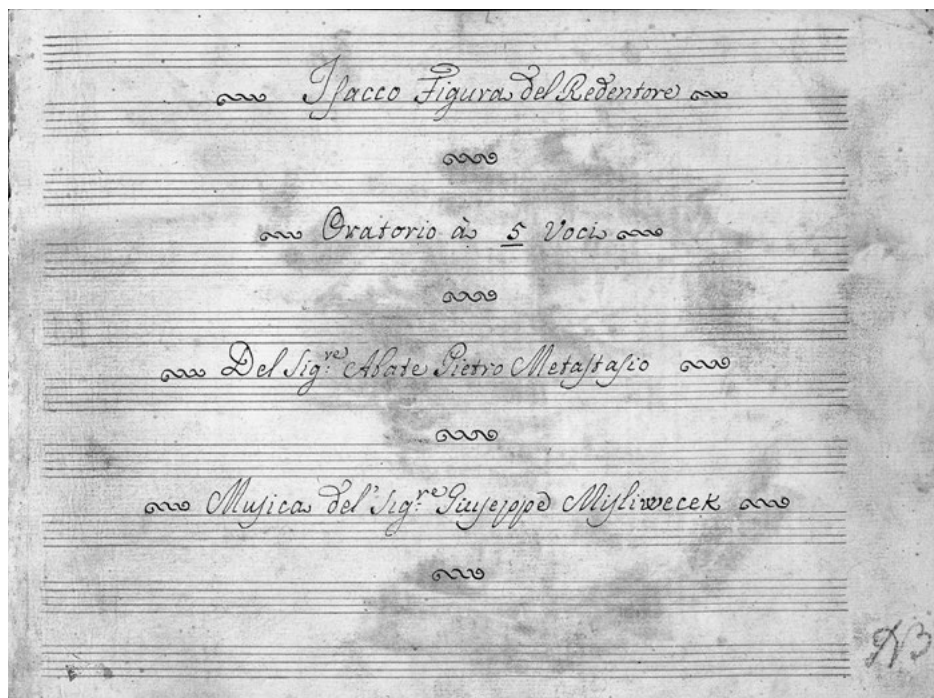 Iſacco Figura del Redentore
Oratorio à 5 Voci
Del Sig:re Abate Pietro Metaſtaſio
Muſica del' Sig:re Giuſeppe Miſliwecek